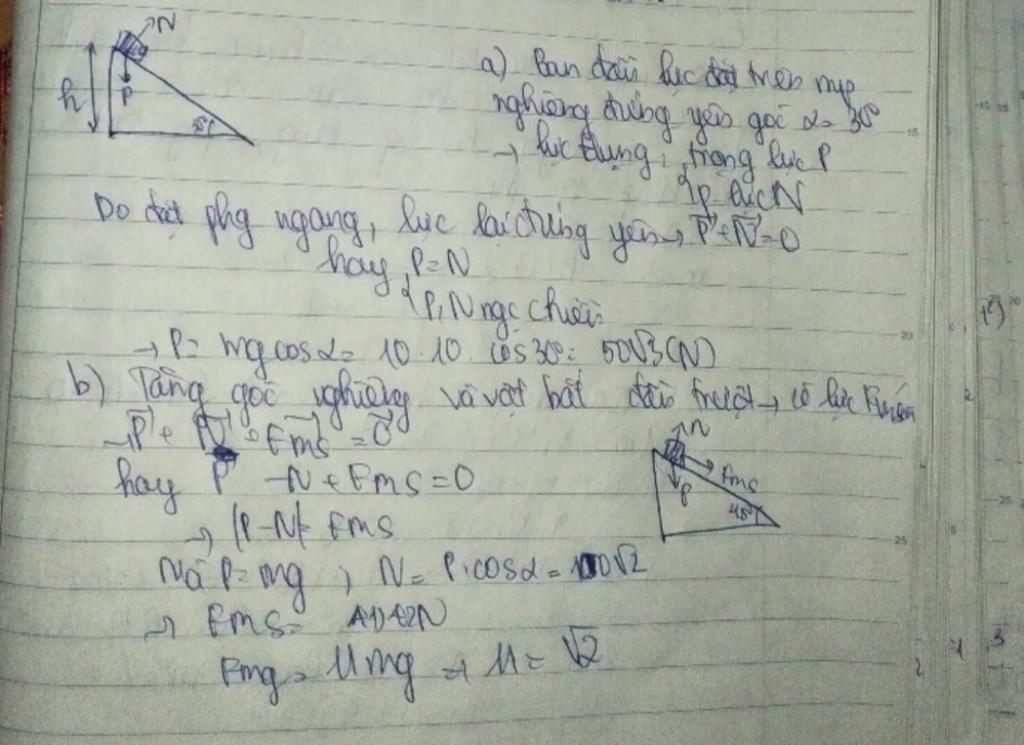 N
h
P
a) Ban đầu lực đặt trên mp
nghiêng đứng yên góc α = 30°
→ lực dụng: trọng lực P
P. lực N
Do đặt phg ngang, lực lại đứng yên → P + N = 0
hay P = N
P, N ngc chiều
→ P = mg cos α = 10 . 10 . cos 30° = 50√3 (N)
b) Tăng góc nghiêng và vật bắt đầu trượt → có lực
→ P + N + Fms = 0
hay P - N + Fms = 0
N
Fms
P
45°
→ |P - N| = Fms
Mà P = mg ; N = P. cos α =
→ Fms =
Fmg = Mmg → M = √2